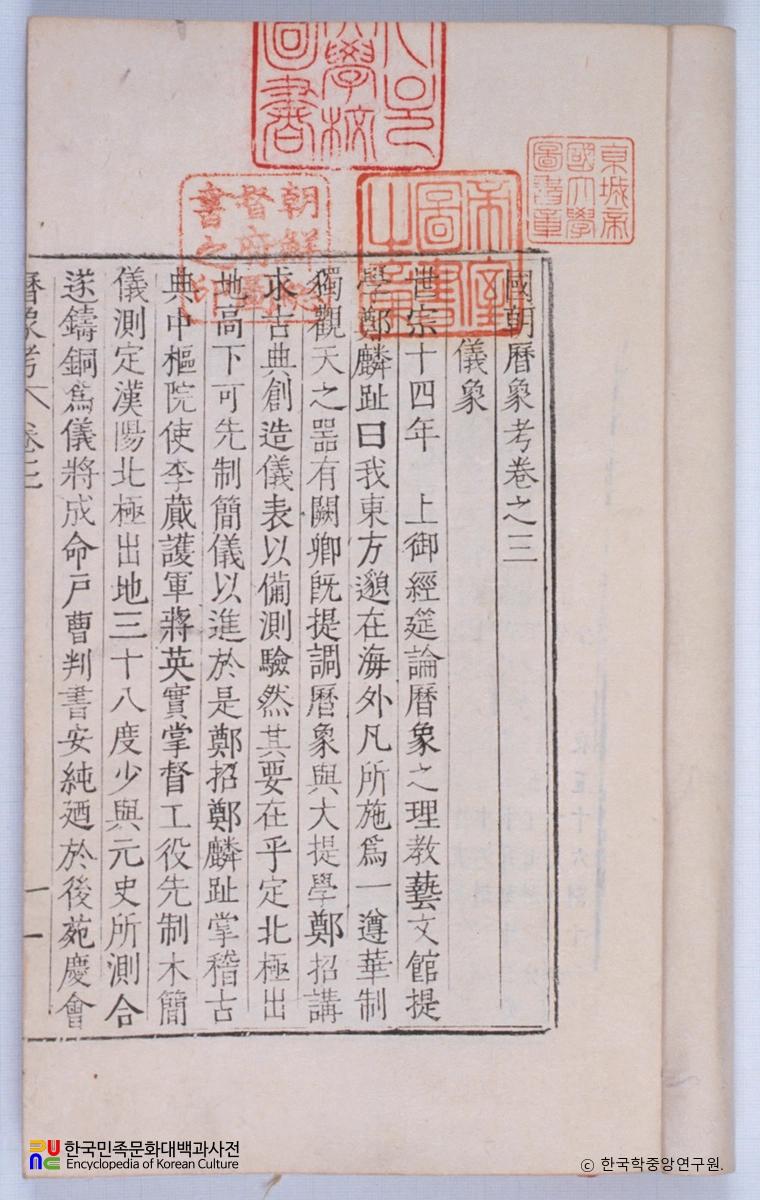 國朝曆象考卷之三
儀象
世宗十四年 上御經筵論曆象之理教藝文館提
學鄭麟趾曰我東方邈在海外凡所施爲一遵華制
獨觀天之器有闕卿旣提調曆象與大提學鄭招講
求古典創造儀表以備測驗然其要在乎定北極出
地高下可先制簡儀以進於是鄭招鄭麟趾掌稽古
典中樞院使李蕆護軍蔣英實掌督工役先制木簡
儀測定漢陽北極出地三十八度少與元史所測合
遂鑄銅爲儀將成命戶曹判書安純廼於後苑慶會
曆象考 卷之三 一
學校
圖書
帝室
圖書
之章
朝鮮總
督府圖
書之印
京城帝
國大學
圖書章
한국민족문화대백과사전
Encyclopedia of Korean Culture
ⓒ 한국학중앙연구원.